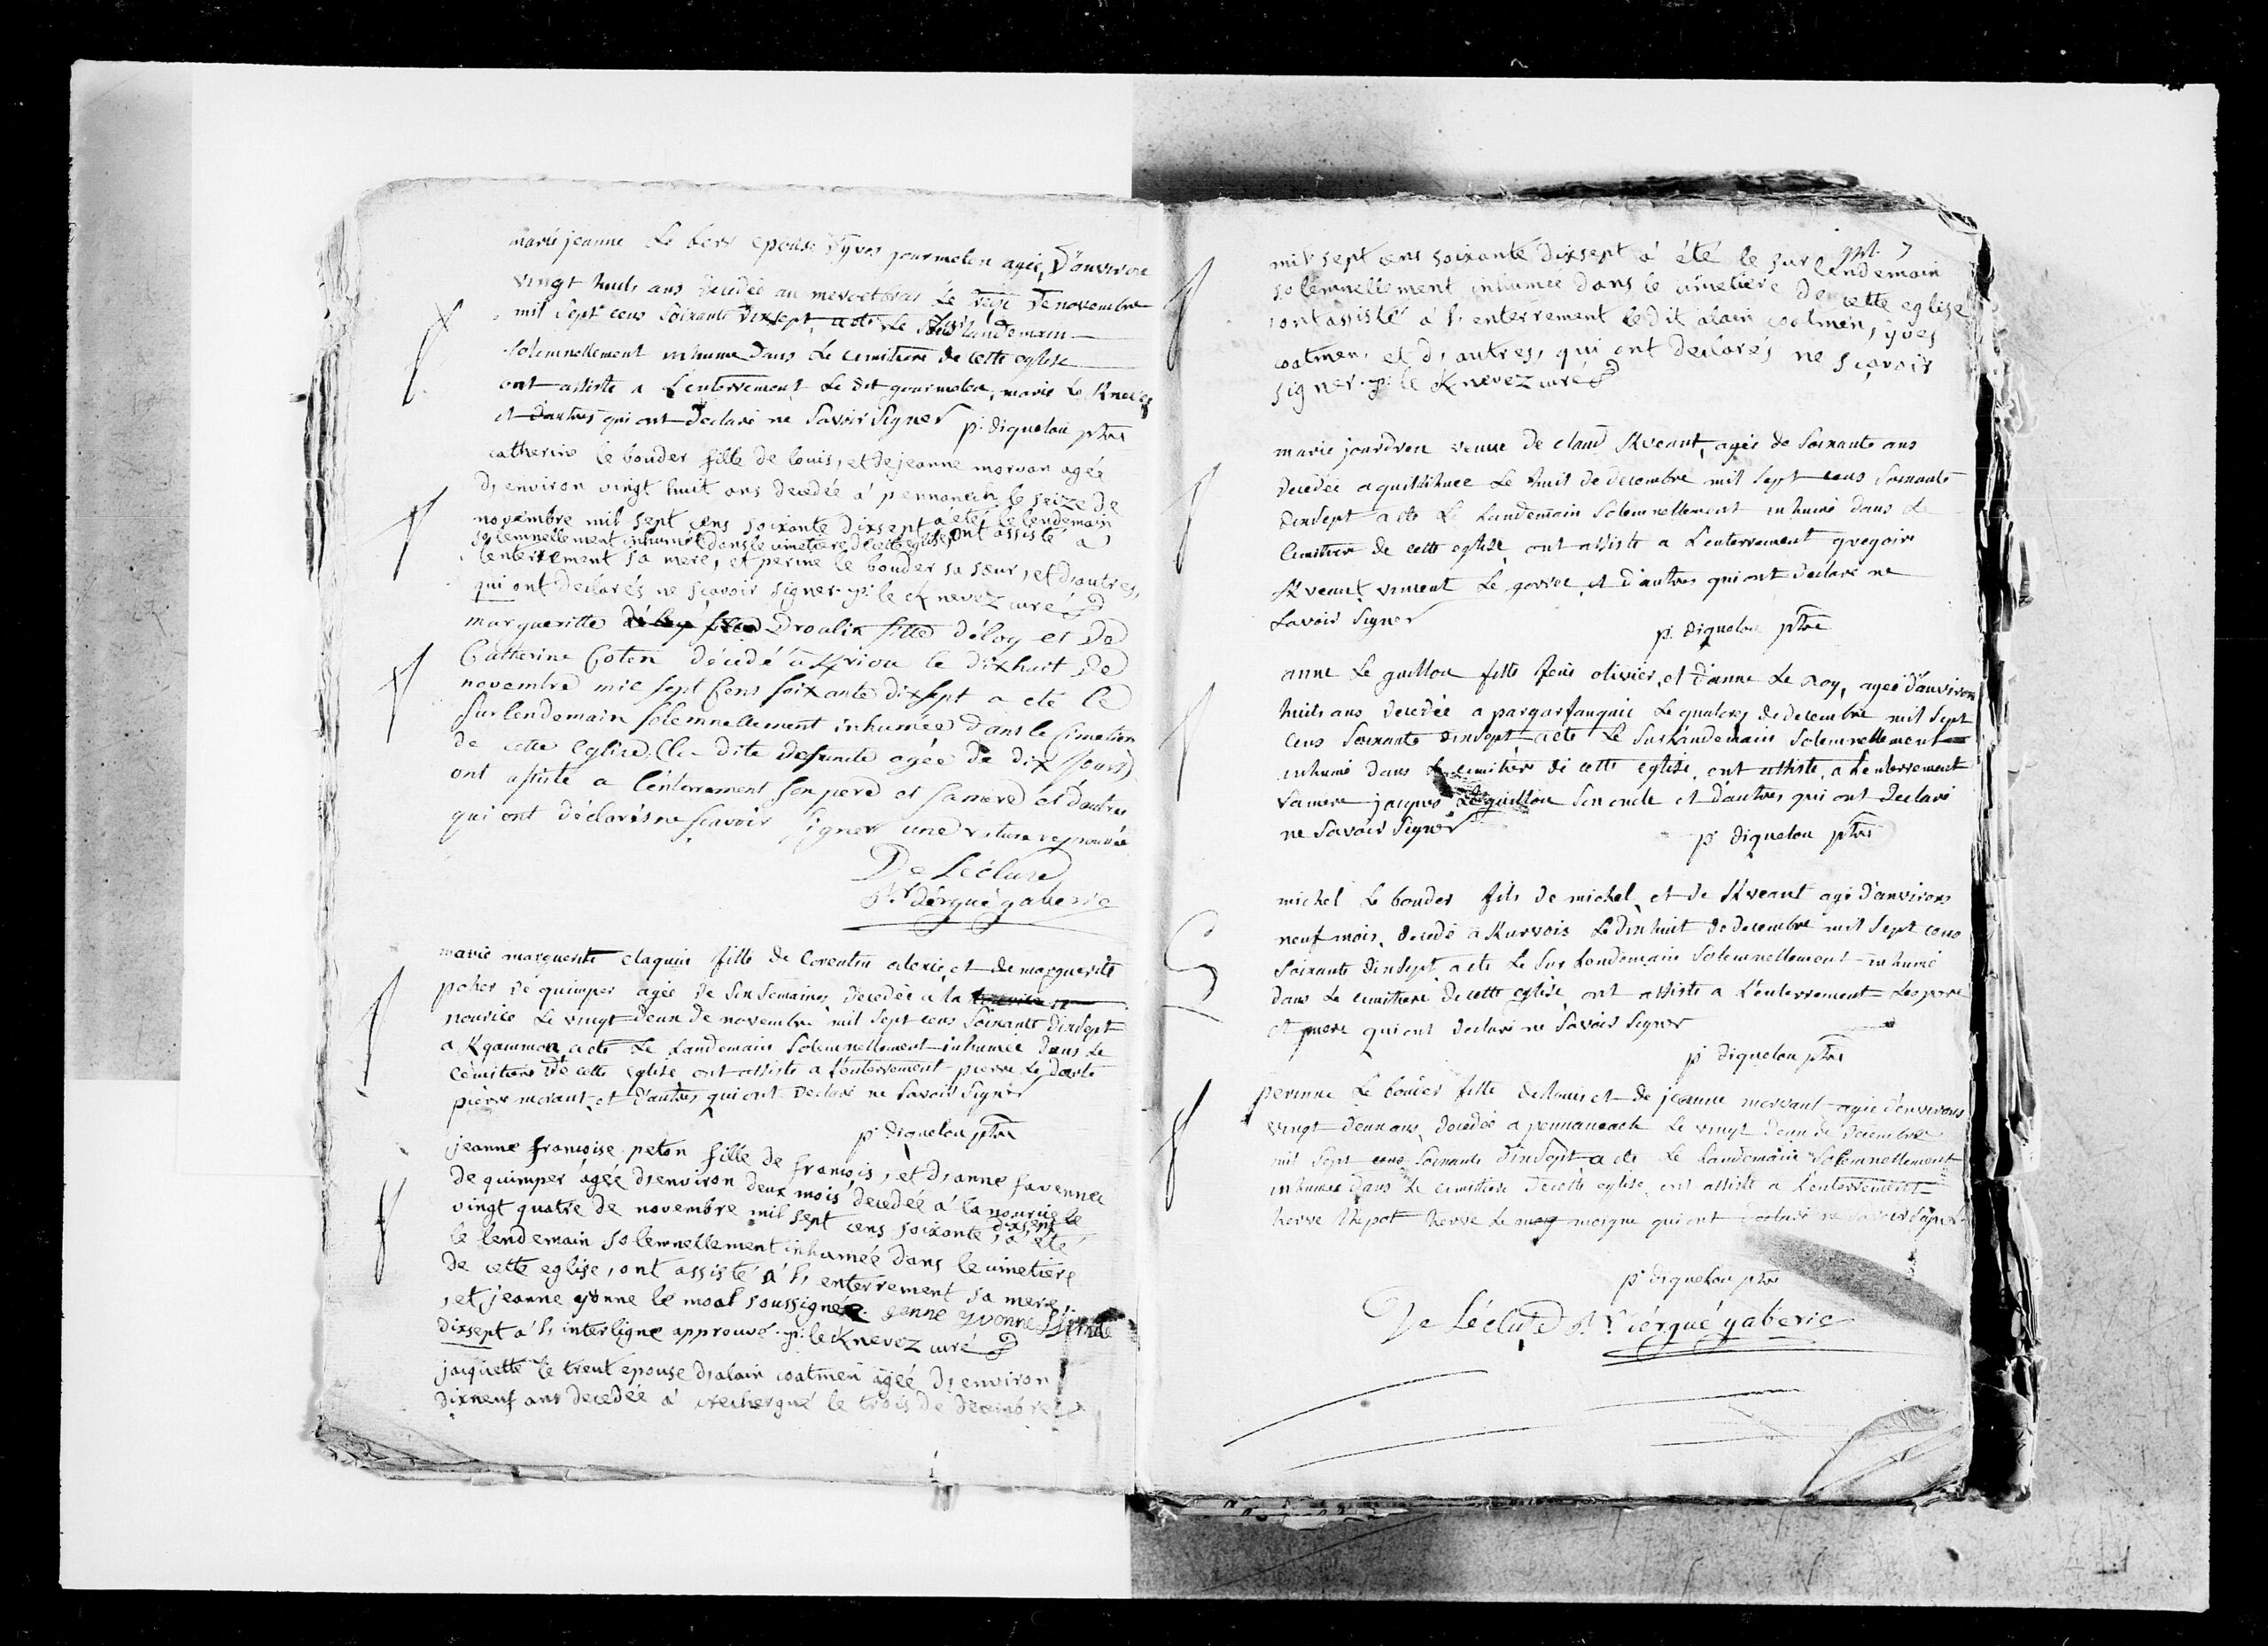 marie jeanne Le berr epouse d'yves gourmelen agée d'anviron
vingt huit ans decedée au mervetbras le treze de novembre
mil sept cens soixante dixsept a ete le surlandemain
solemnellement inhume dans le cimitiere de cette eglise
ont assiste a l'enterrement le dit gourmelen, marie le Knevez
et d'autres qui ont declaré ne savoir signer p. diquelou ptre
catherine le bouder fille de louis, et de jeanne morvan agée
d'environ vingt huit ans decedée à pennanech le seize de
novembre mil sept cens soixante dixsept a été le lendemain
solemnellement inhumée dans le cimetiere de cette eglise, ont assisté a
l'enterrement sa mere, et perine le bouder sa sœur, et d'autres,
qui ont declarés ne sçavoir signer. p. le Knevez curé
margueritte droalin fille d'éloy et de
Catherine Coten décédé à Kriou le dixhuit de
novembre mil sept Cens soixante dixsept a eté le
surlendemain solemnellement inhumée dans le Cimetiere
de cette Eglise, (la dite defunte agée de dix jours)
ont assisté a l'enterrement son pere et sa mere et d'autres
qui ont déclarés ne sçavoir signer une rature reprouvée
De Lécluse
Rr d'ergué gaberic
marie marguerite claquin fille de Corentin alexis, et de marguerite
poher de quimper agée de six semaines decedée a la
nourice le vingt deux de novembre mil sept cens soixante dixsept
a Kgaumon a ete le landemain solemnellement inhumée dans le
cemitiere de cette eglise ont assisté a l'enterrement pierre le
pierre morant, et d'autres qui ont declaré ne savoir signer
p. diquelou ptre
jeanne françoise peton fille de françois, et d'anne favennec
de quimper âgée d'environ deux mois decedée à la nourice le
vingt quatre de novembre mil sept cens soixante dixsept, a été
le lendemain solemnellement inhumée dans le cimetiere
de cette eglise, ont assisté a l'enterrement sa mere
, et jeanne yvonne le moal soussignée. janne yvonne
dixsept à l'interligne approuvé. p. le Knevez curé
jaquette le treut epouse d'alain coatmen âgée d'environ
dixneuf ans decedée à crechergué le trois de decembre
mil sept cens soixante dixsept à été le surlendemain
solemnellement inhumée dans le cimetiere de cette eglise
, ont assisté à l'enterrement le dit alain coatmen, yves
coatmen, et d'autres, qui ont declarés ne sçavoir
signer. p. le Knevez curé
marie jourdren veuve de claud Kveant, agée de soixante ans
decedée a quillihuec le huit de decembre mil sept cens soixante
dixsept a ete le landemain solemnellement inhumé dans le
cimitiere de cette eglise, ont assiste a l'enterrement gregoire
Kveant, vincent le gorrec, et d'autres qui ont declaré ne
savoir signer
p. diquelou ptre
anne Le guillou fille feue olivier, et d'anne Le roy, agée d'anviron
huits ans decedée a le quatorz de decembre mil sept
cens soixante dixsept a ete le surlandemain solemnellement
inhumé dans le cimitiere de cette eglise, ont assiste, a l'enterrement
sa mere jacques Le guillou son oncle et d'autres qui ont declaré
ne savoir signer
p. diquelou ptre
michel Le bouder fils de michel, et de Kveant agé d'anvirons
neuf mois, decedé a Kurvois le dixhuit de decembre mil sept cens
soixante dixsept a ete le sur landemain solemnellement inhumé
dans le cimitiere de cette eglise, ont assiste a l'enterrement les pere
et mere qui ont declaré ne savoir signer
p. diquelou ptre
perinne Le bouder fille de louis et de jeanne morvant agée d'environs
vingt deux ans, decedée a pennaneach le vingt deux de decembre
mil sept cens soixante dixsept a ete le landemain solemnellement
inhumée dans le cimitiere de cette eglise, ont assiste a l'enterrement
herve herve le moigne qui ont declaré ne savoir signer
p. diquelou ptre
De Lécluse Rr d'ergué gaberic